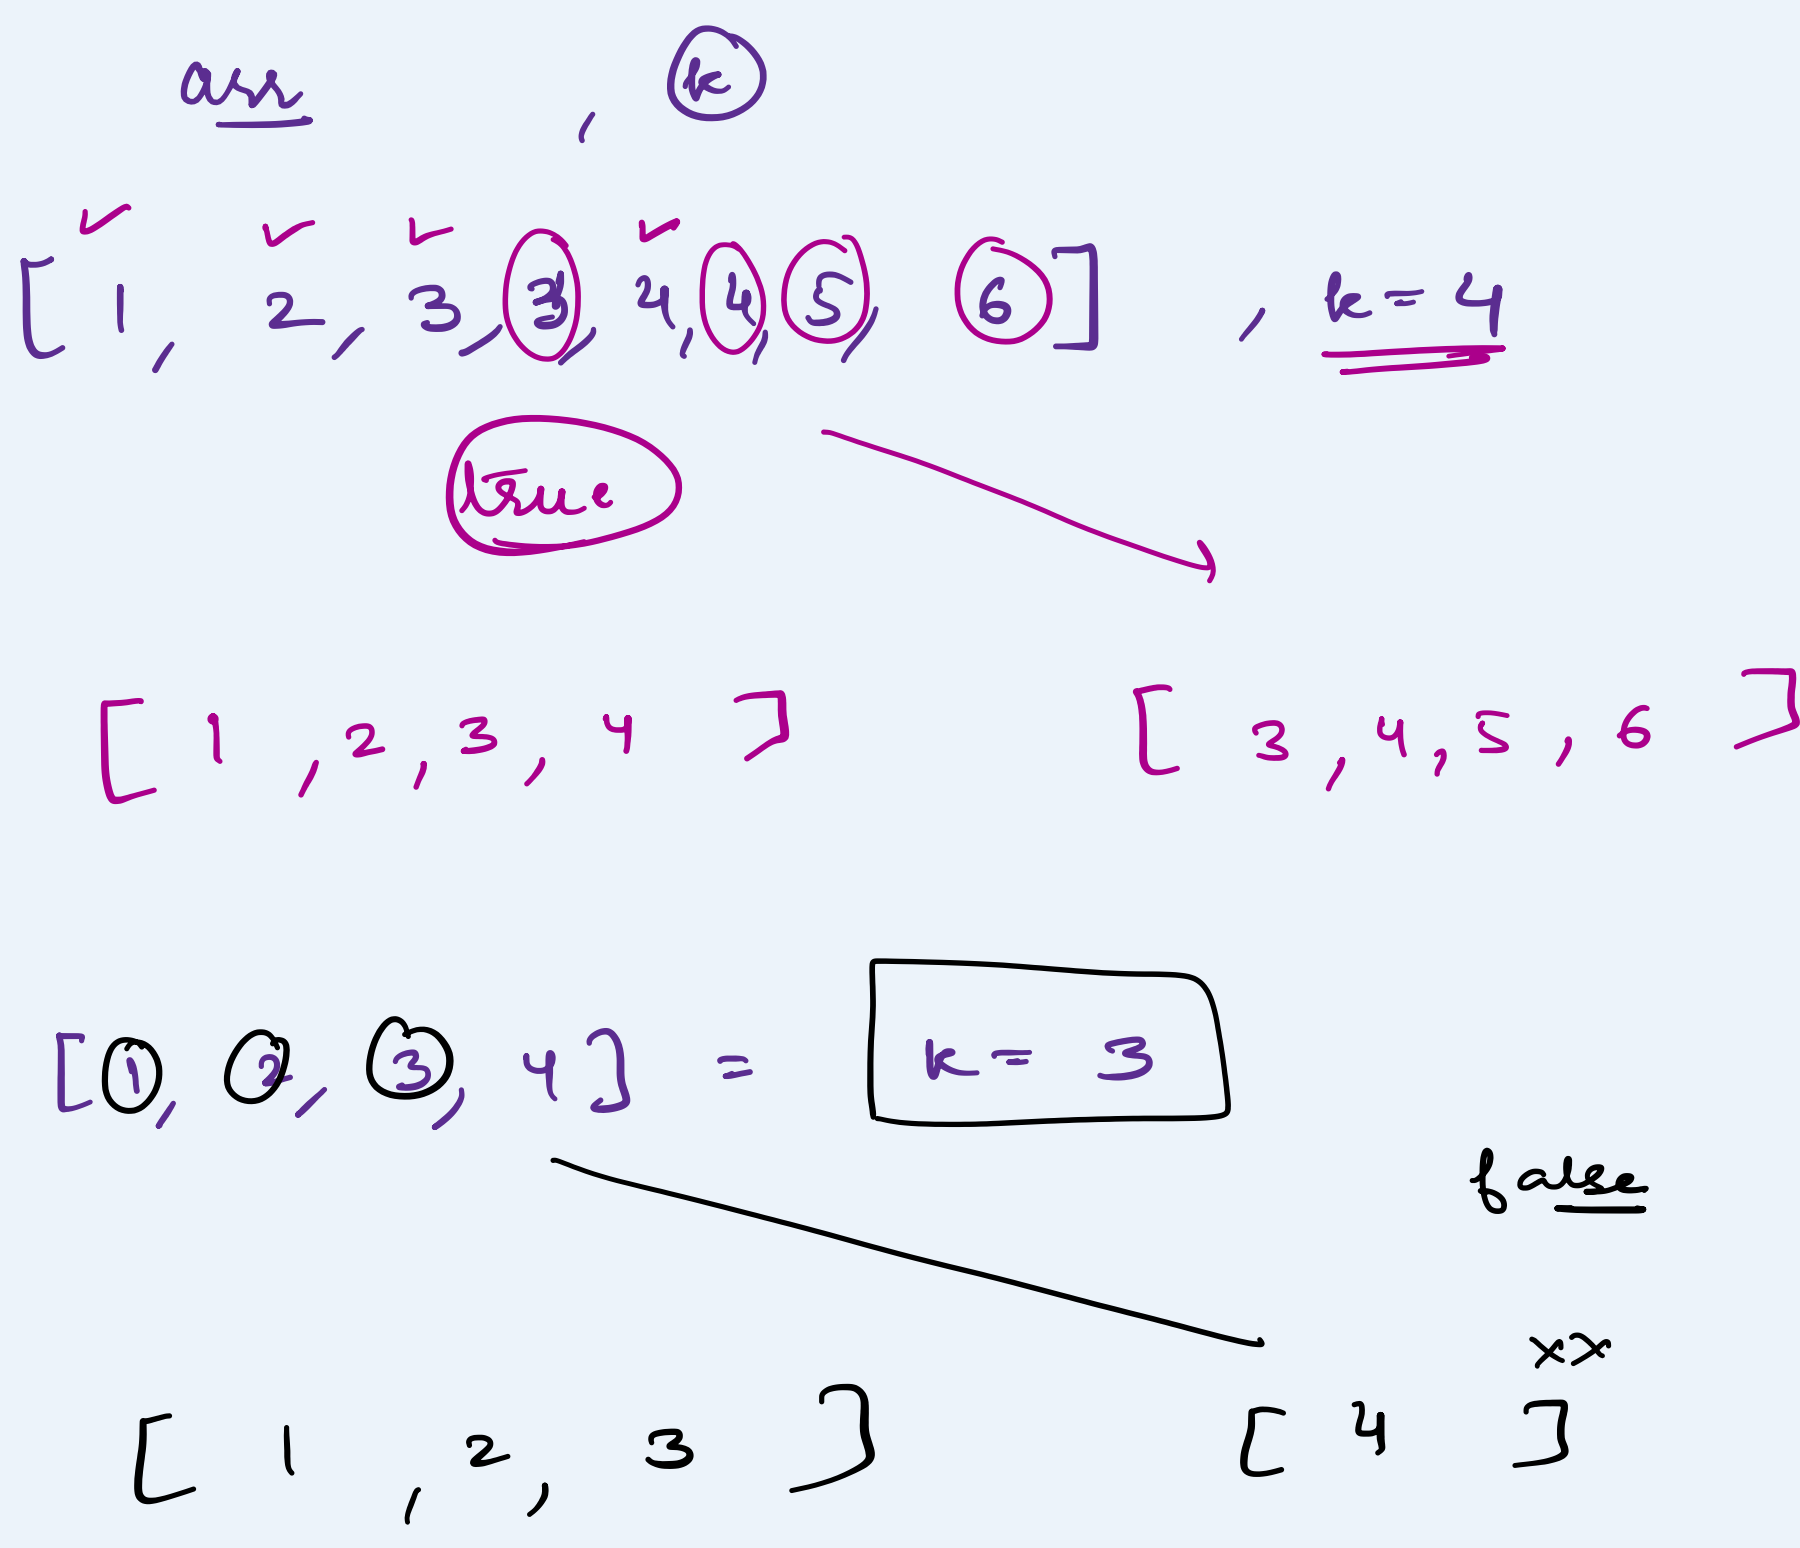 arr , k
[ 1, 2, 3, 3, 4, 4, 5, 6 ] , k = 4
true
[ 1, 2, 3, 4 ] [ 3, 4, 5, 6 ]
[ 1, 2, 3, 4 ] = k = 3
false
xx
[ 1, 2, 3 ] [ 4 ]